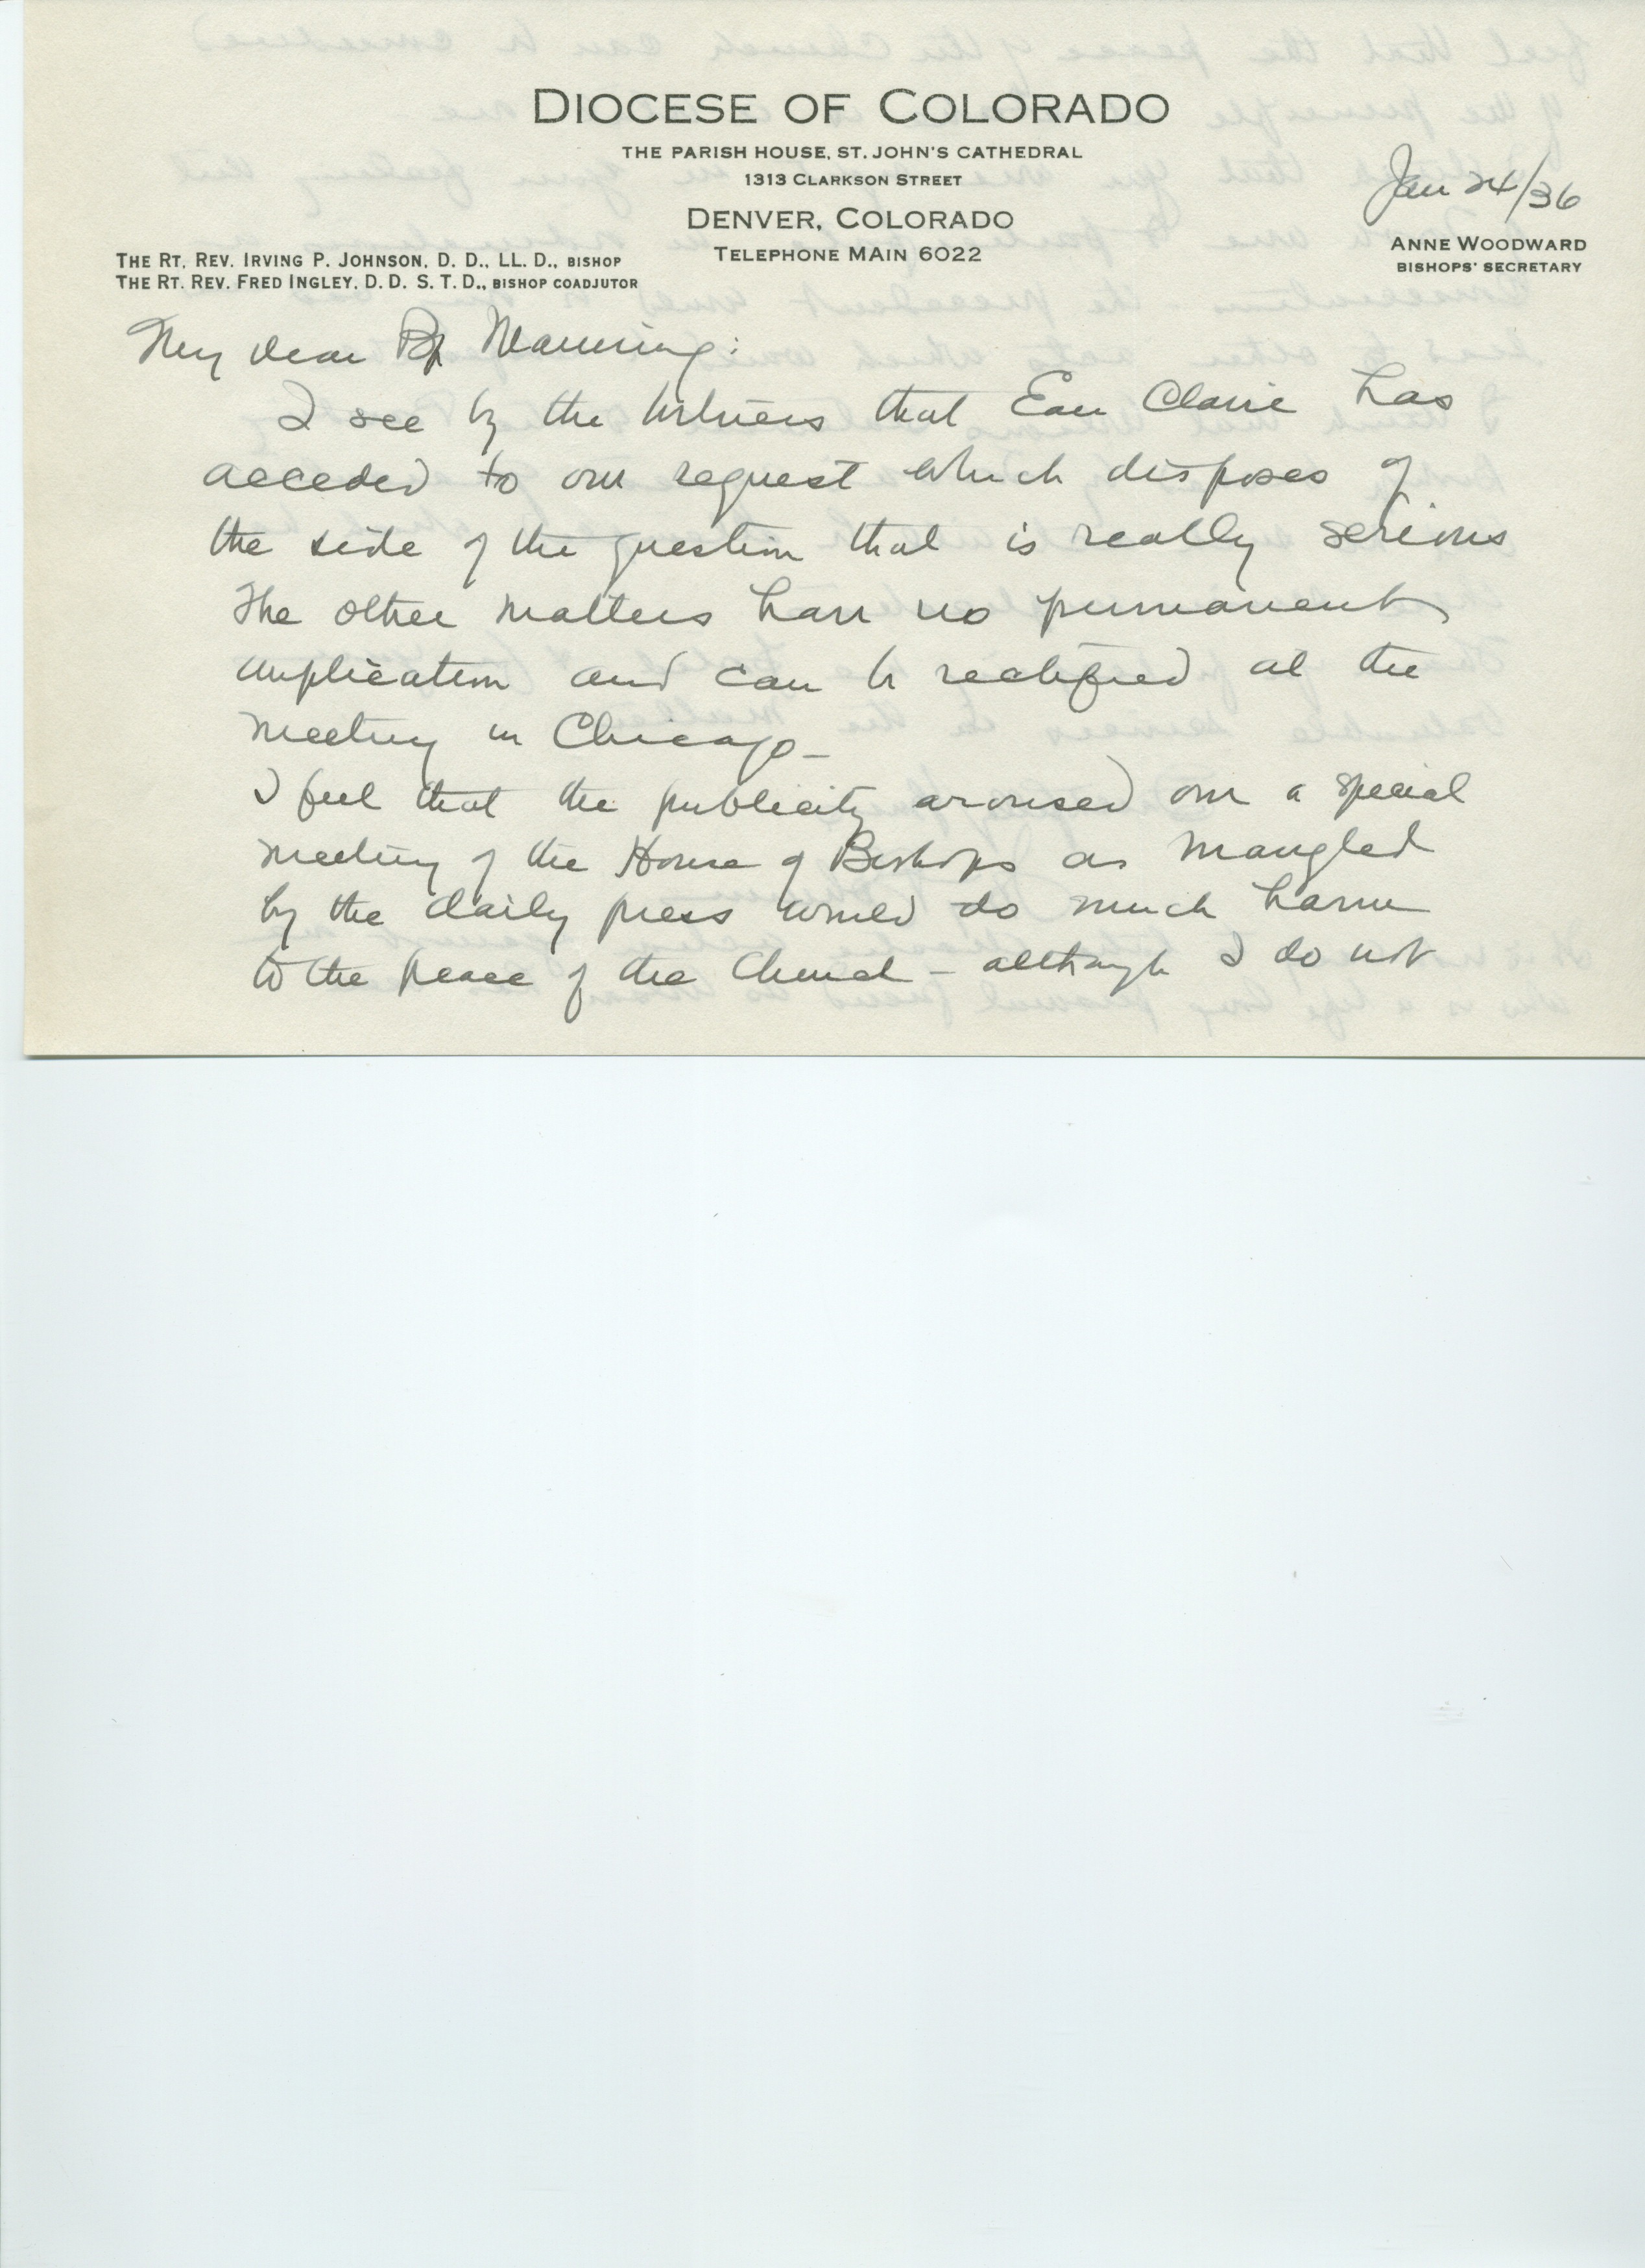 DIOCESE OF COLORADO
THE PARISH HOUSE, ST. JOHN'S CATHEDRAL
1313 CLARKSON STREET
DENVER, COLORADO
TELEPHONE MAIN 6022
Jan 24/36
ANNE WOODWARD
BISHOPS' SECRETARY
THE RT. REV. IRVING P. JOHNSON, D. D., LL. D., BISHOP
THE RT. REV. FRED INGLEY, D. D. S. T. D., BISHOP COADJUTOR
My dear Bp Manning:
I see by the Witness that Eau Claire has
acceded to our request which disposes of
the side of the question that is really serious
The other matters have no permanent
implication and can be rectified at the
meeting in Chicago-
I feel that the publicity aroused over a special
meeting of the House of Bishops as mangled
by the daily press would do much harm
to the peace of the Church - although I do not